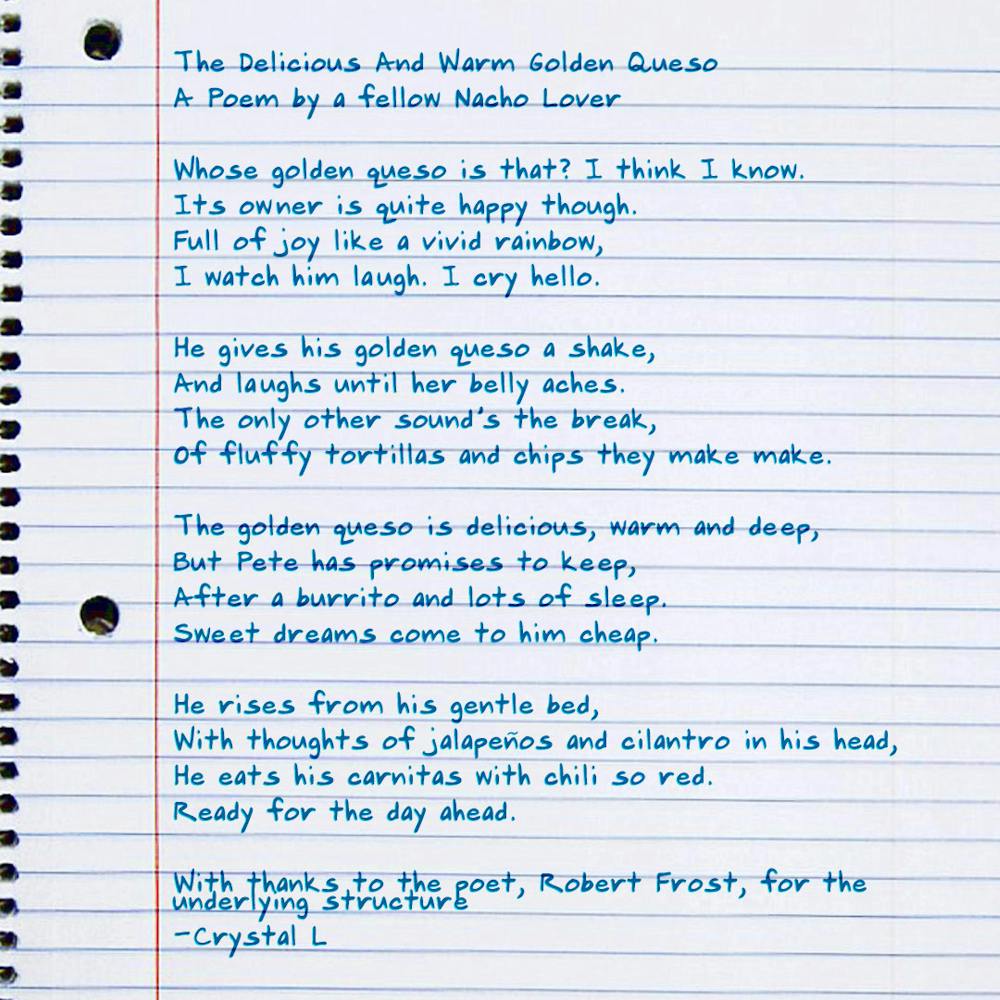 The Delicious And Warm Golden Queso
A Poem by a fellow Nacho Lover
Whose golden queso is that? I think I know.
Its owner is quite happy though.
Full of joy like a vivid rainbow,
I watch him laugh. I cry hello.
He gives his golden queso a shake,
And laughs until her belly aches.
The only other sound's the break,
Of fluffy tortillas and chips they make make.
The golden queso is delicious, warm and deep,
But Pete has promises to keep,
After a burrito and lots of sleep.
Sweet dreams come to him cheap.
He rises from his gentle bed,
With thoughts of jalapeños and cilantro in his head,
He eats his carnitas with chili so red.
Ready for the day ahead.
With thanks to the poet, Robert Frost, for the
underlying structure
-Crystal L